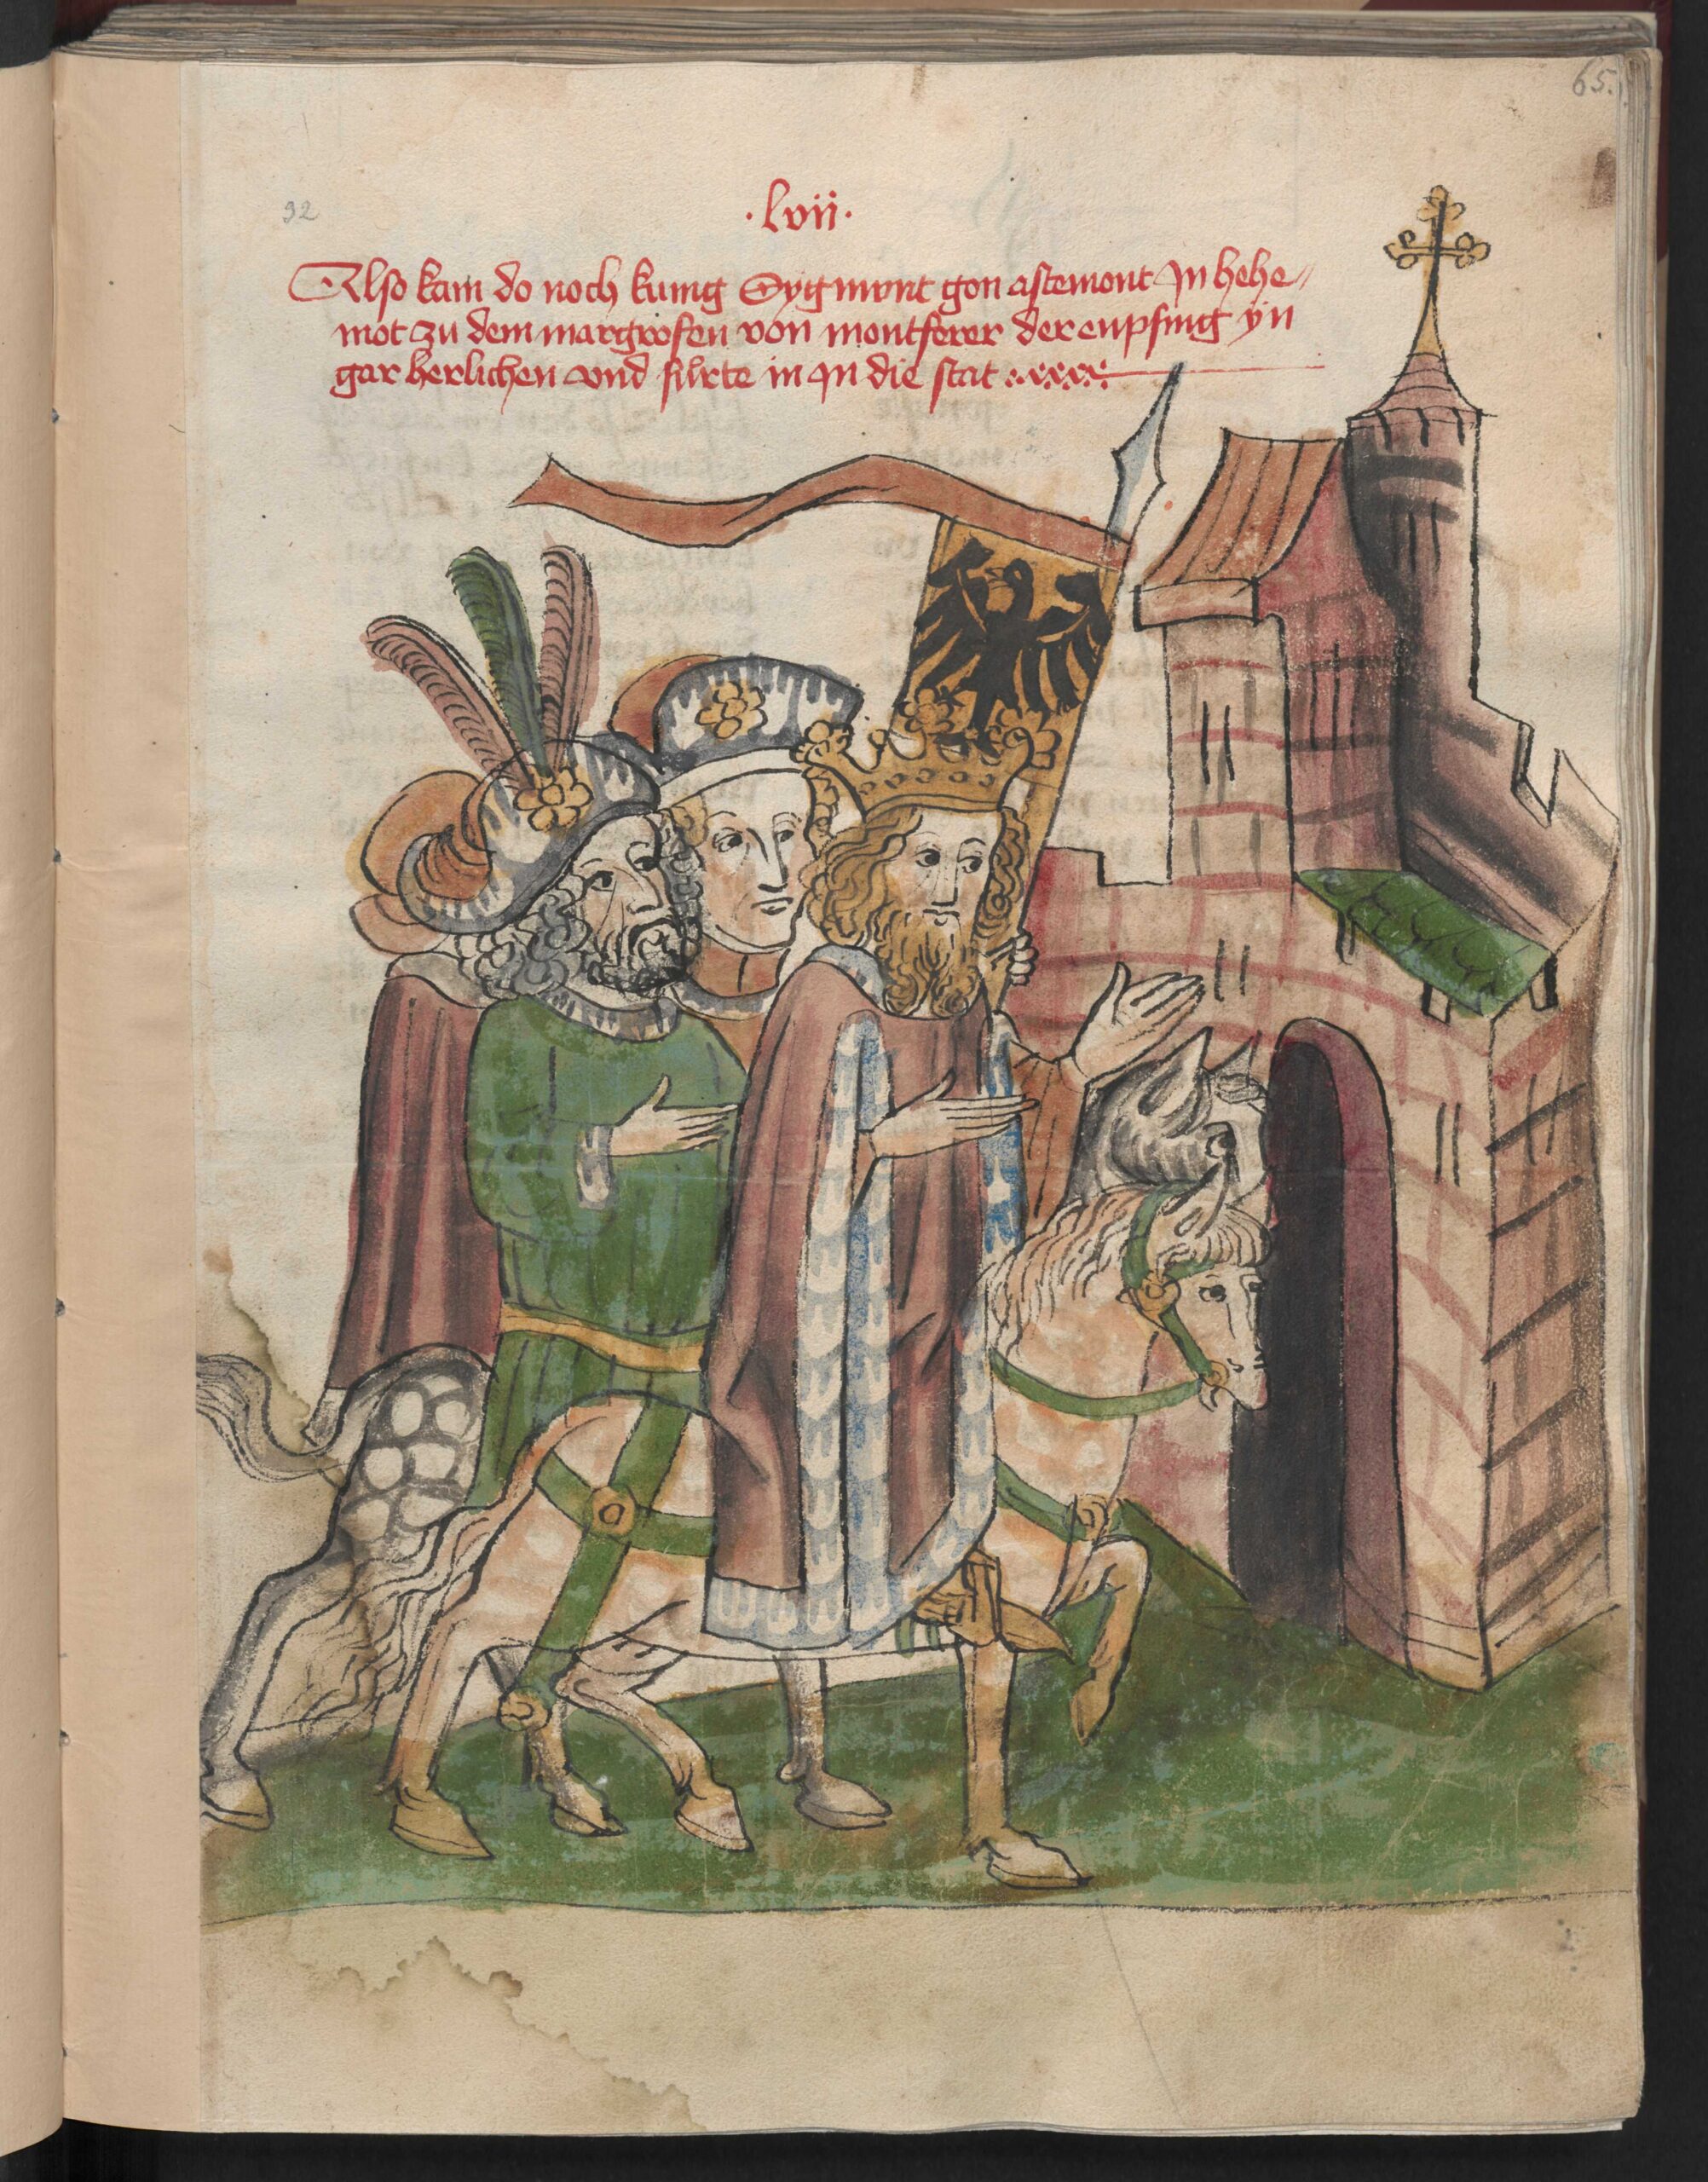 65.
92
·lvii·
Also kam do noch kunig Sygmont gon astemont In hehe-
mot zu dem margrofen von montferer der enpfing yn
gar herlichen vnd fürte in In die stat